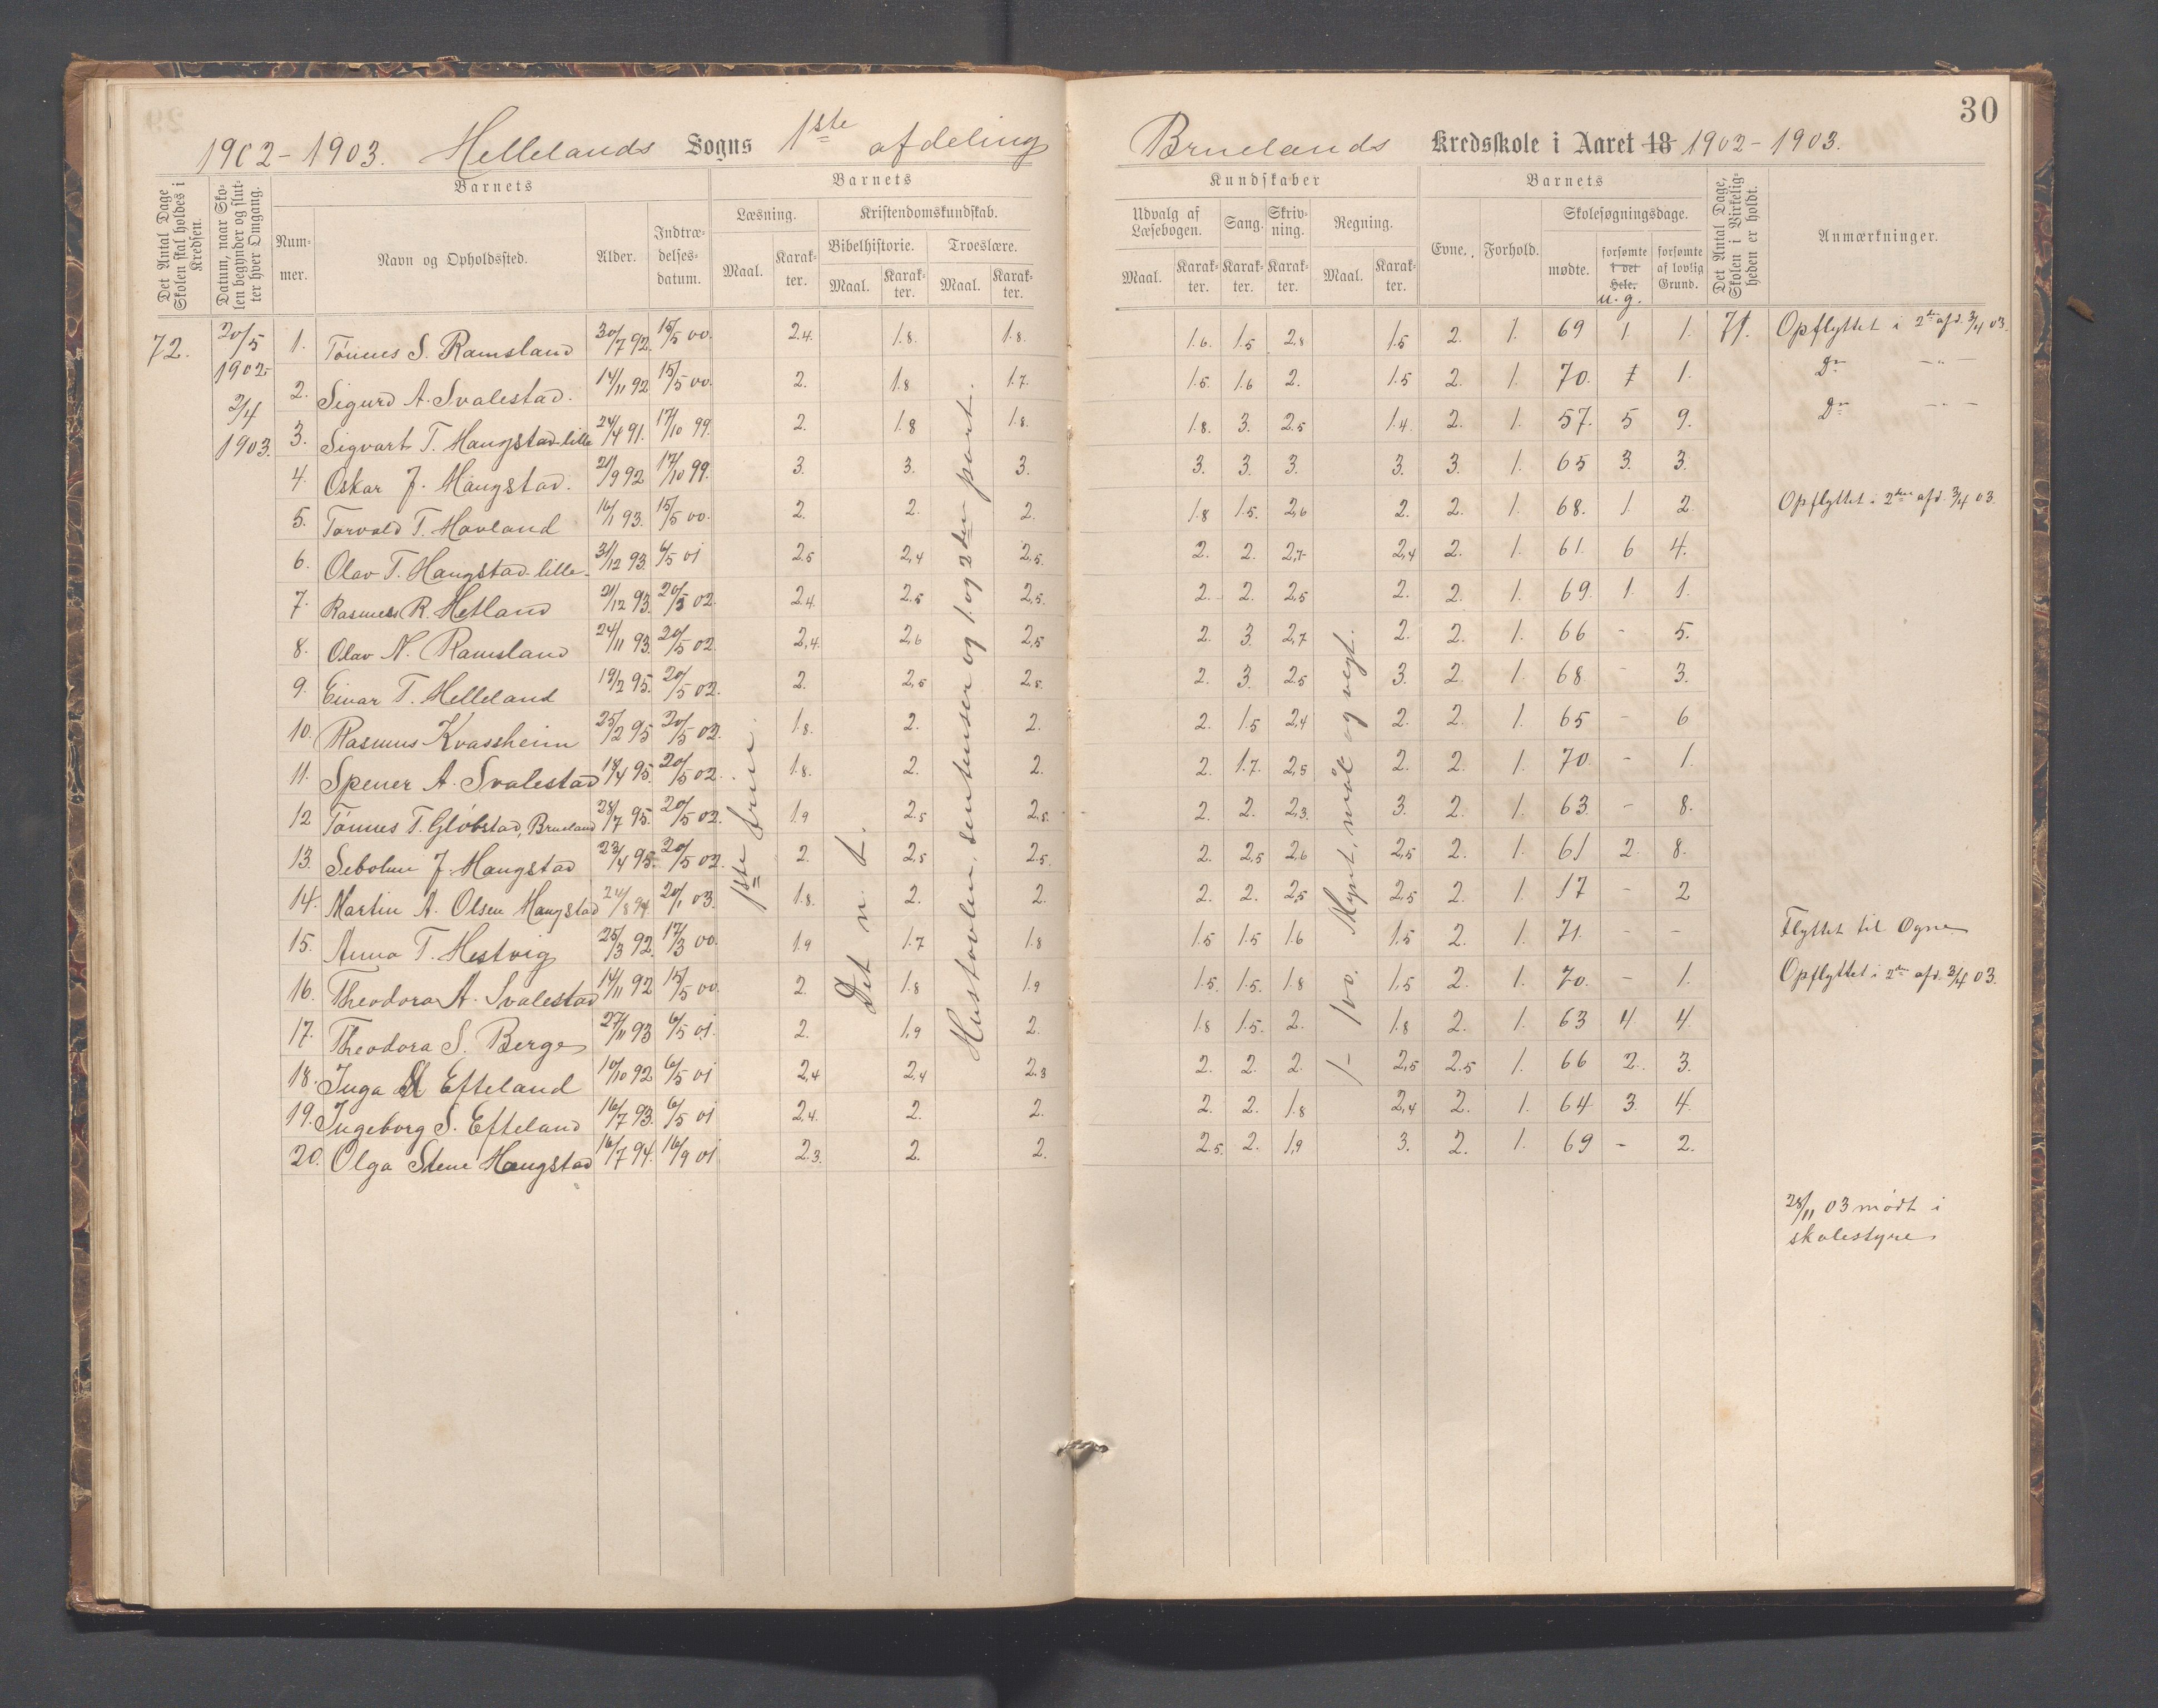 30
1902-1903. Hellelands Sogns 1ste afdeling Bruelands Kredsskole i Aaret 18 1902-1903.
Det Antal Dage Skolen skal holdes i Kredsen.
Datum, naar Skolen begynder og slutter hver Omgang.
Barnets
Nummer.
Navn og Opholdssted.
Alder.
Indtrædelsesdatum.
Barnets
Læsning.
Maal.
Karakter.
Kristendomskundskab.
Bibelhistorie.
Maal.
Karakter.
Troeslære.
Maal.
Karakter.
Kundskaber
Udvalg af Læsebogen.
Maal.
Karakter.
Sang.
Karakter.
Skrivning.
Karakter.
Regning.
Maal.
Karakter.
Barnets
Evne.
Forhold.
Skolesøgningsdage.
mødte.
forsømte i det Hele. u. g.
forsømte af lovlig Grund.
Det Antal Dage, Skolen i Virkeligheden er holdt.
Anmærkninger.
72.
20/5 1902-
2/4 1903.
1ste
Det n. t.
Hustavlen, sentenser og 1. og 2den part.
1-100. Mynt, mål og vegt.
1. Tønnes S. Ramsland 30/7 92. 15/5 00. 2.4. 1.8. 1.8. 1.6. 1.5 2.8 1.5 2. 1. 69 1 1. 71. Opflyttet i 2den afd. 3/4 03.
2. Sigurd A. Svalestad. 14/11 92 15/5 00. 2. 1.8 1.7. 1.5. 1.6 2. 1.5 2. 1. 70. 1 1. Do -"-
3. Sigvart T. Haugstad lille 24/4 91. 17/10 99. 2. 1.8 1.8. 1.8. 3. 2.5 1.4. 2. 1. 57. 5 9. Do -"-
4. Oskar J. Haugstad. 21/9 92 17/10 99. 3. 3. 3. 3. 3. 3. 3. 3. 1. 65 3. 3.
5. Torvald T. Hovland 16/1 93. 15/5 00. 2. 2. 2. 1.8 1.5. 2,6 2. 2. 1. 68. 1. 2. Opflyttet i 2den afd. 3/4 03.
6. Olav T. Haugstad lille 31/12 93. 6/5 01 2.5 2,4 2,5. 2. 2. 2,7 2,4 2. 1. 61. 6 4.
7. Rasmus R. Hetland 21/12 93. 20/5 02. 2.4. 2.5 2,5. 2. 2. 2,5 2. 2. 1. 69. 1. 1.
8. Olav N. Ramsland 24/11 93. 20/5 02. 2,4. 2,6 2,5 2. 3. 2,7 2. 2. 1. 66 - 5.
9. Einar T. Helleland 19/2 95. 20/5 02. 2. 2,5 2.5. 2. 3. 2.5 3. 2. 1. 68. - 3.
10. Rasmus Kvassheim 25/2 95 20/5 02. 1.8. 2. 2. 2. 1.5 2.4 2. 2. 1. 65 - 6
11. Spener A. Svalestad 18/4 95. 20/5 02. 1.8. 2. 2. 2. 1.7. 2,5 2. 2. 1. 70. - 1.
12 Tønnes T. Gløbstad, Brueland 28/7 95. 20/5 02. 1.9 2.5 2,5. 2. 2. 2,3. 3. 2. 1. 63. - 8.
13. J. Haugstad 23/4 95. 20/5 02. 2. 2.5 2.5. 2. 2,5 2,6 2,5 2. 1. 61 2. 8.
14. Martin A. Olsen Haugstad 24/8 94 20/1 03. 1.8. 2. 2. 2. 2. 2,5 2,5 2. 1. 17 - 2
15. Anna T. Hestvig 25/3 92. 17/3 00. 1.9 1.7 1.8 1.5 1.5 1.6 1.5 2. 1. 71. - - Flyttet til Ogna
16. Theodora A. Svalestad 14/11 92 15/5 00. 2. 1.8 1.9 1.5. 1.5. 1.8 1,5 2. 1. 70. - 1. Opflyttet i 2den afd. 3/4 03.
17. Theodora S. Berge 27/11 93 6/5 01. 2. 1,9 2. 1.8 1.5. 2. 1.8 2. 1. 63 4 4.
18. Inga Efteland 10/10 92 6/5 01 2,4 2,4 2.3 2. 2. 2. 2,5 2.5 1. 66 2. 3.
19. Ingeborg S. Efteland 16/7 93. 6/5 01 2,4. 2. 2. 2. 2. 1.8 2,4 2. 1. 64 3. 4.
20. Olga Stene Haugstad 16/7 94. 16/9 01 2.3. 2. 2. 2.5. 2. 1,9 3. 2. 1. 69 - 2.
28/11 03 mødt i
skolestyre